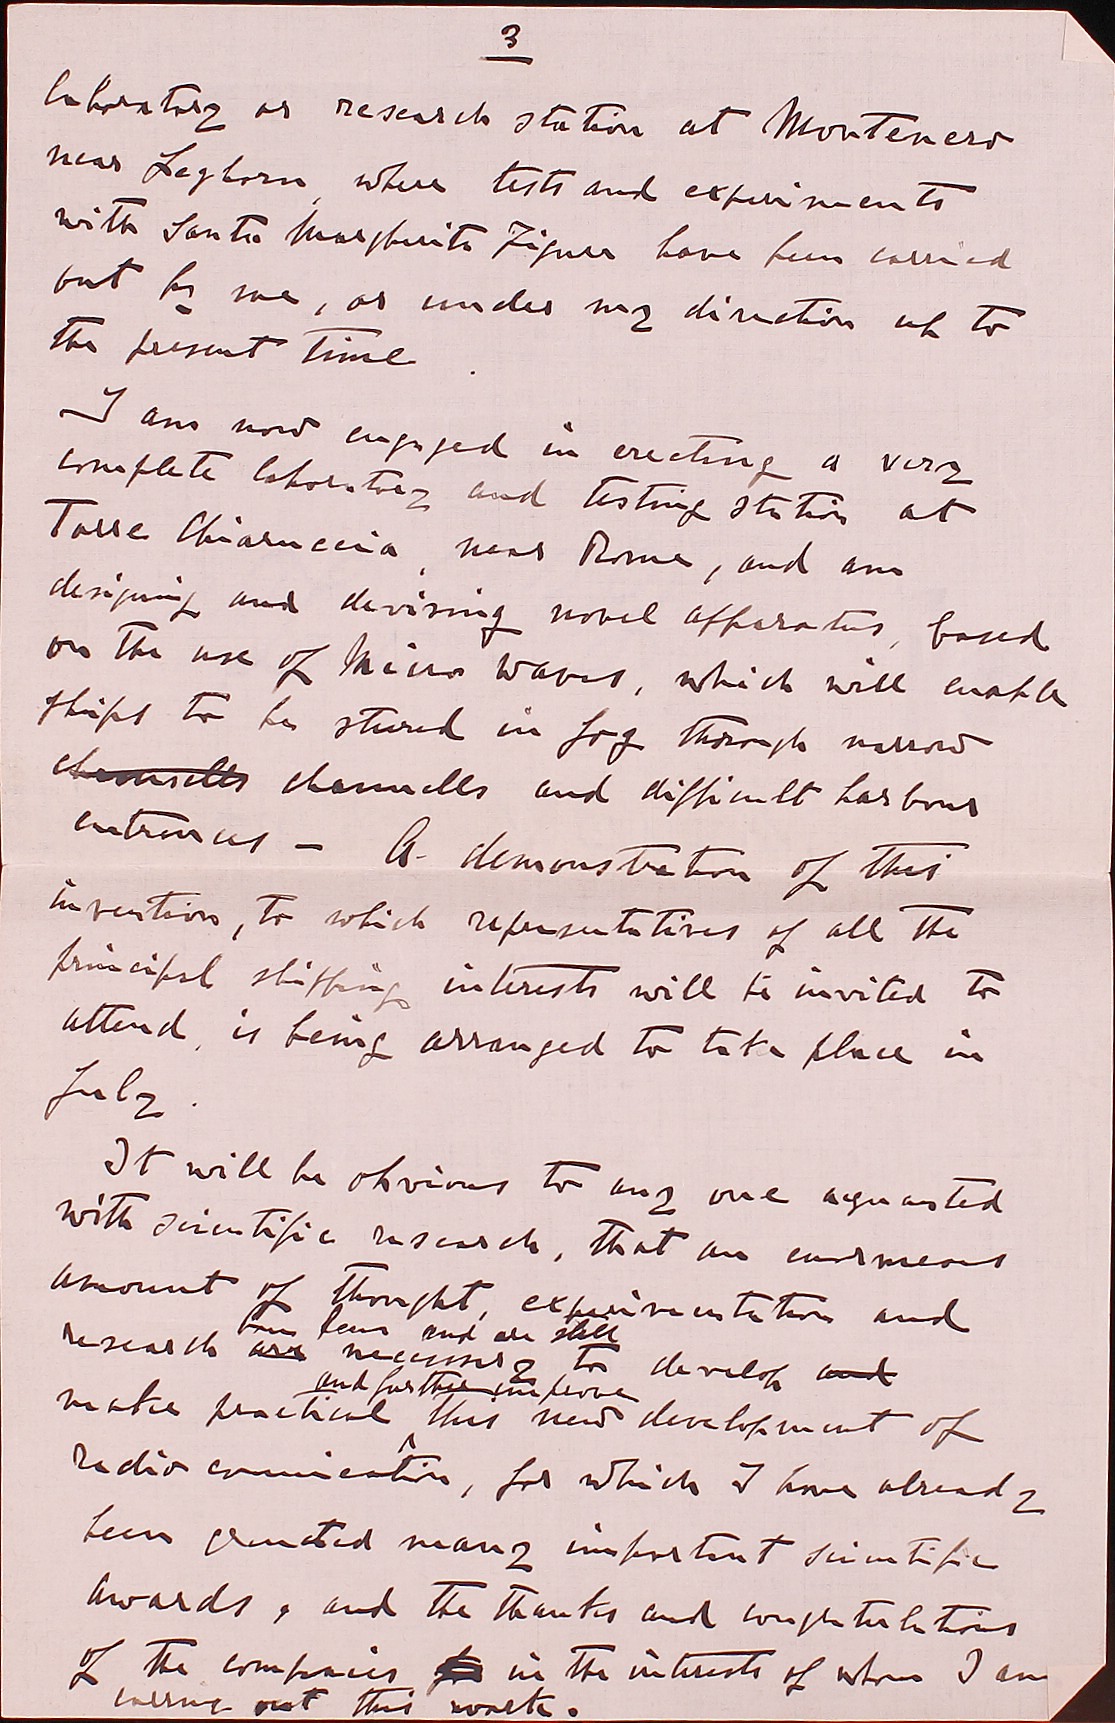 3
laboratory or research station at Montenero
near Leghorn, where tests and experiments
with Santa Margherita Ligure have been carried
out by me, or under my direction up to
the present time.
I am now engaged in erecting a very
complete laboratory and testing station at
Torre Chiaruccia, near Rome, and am
designing and devising novel apparatus, based
on the use of Micro Waves, which will enable
ships to be steered in fog through narrow
channells channells and difficult harbour
entrances - A demonstration of this
invention, to which representatives of all the
principal shipping interests will be invited to
attend, is being arranged to take place in
July.
It will be obvious to any one aquanted
with scientific research, that an enormeous
amount of thought, experimentation and
have been and are still
research are necessary to develop and
and further improve
make practical this new development of
radio comunication, for which I have already
been granted many important scientific
awards, and the thanks and congratulations
of the companies in the interests of whom I am
carring out this work.